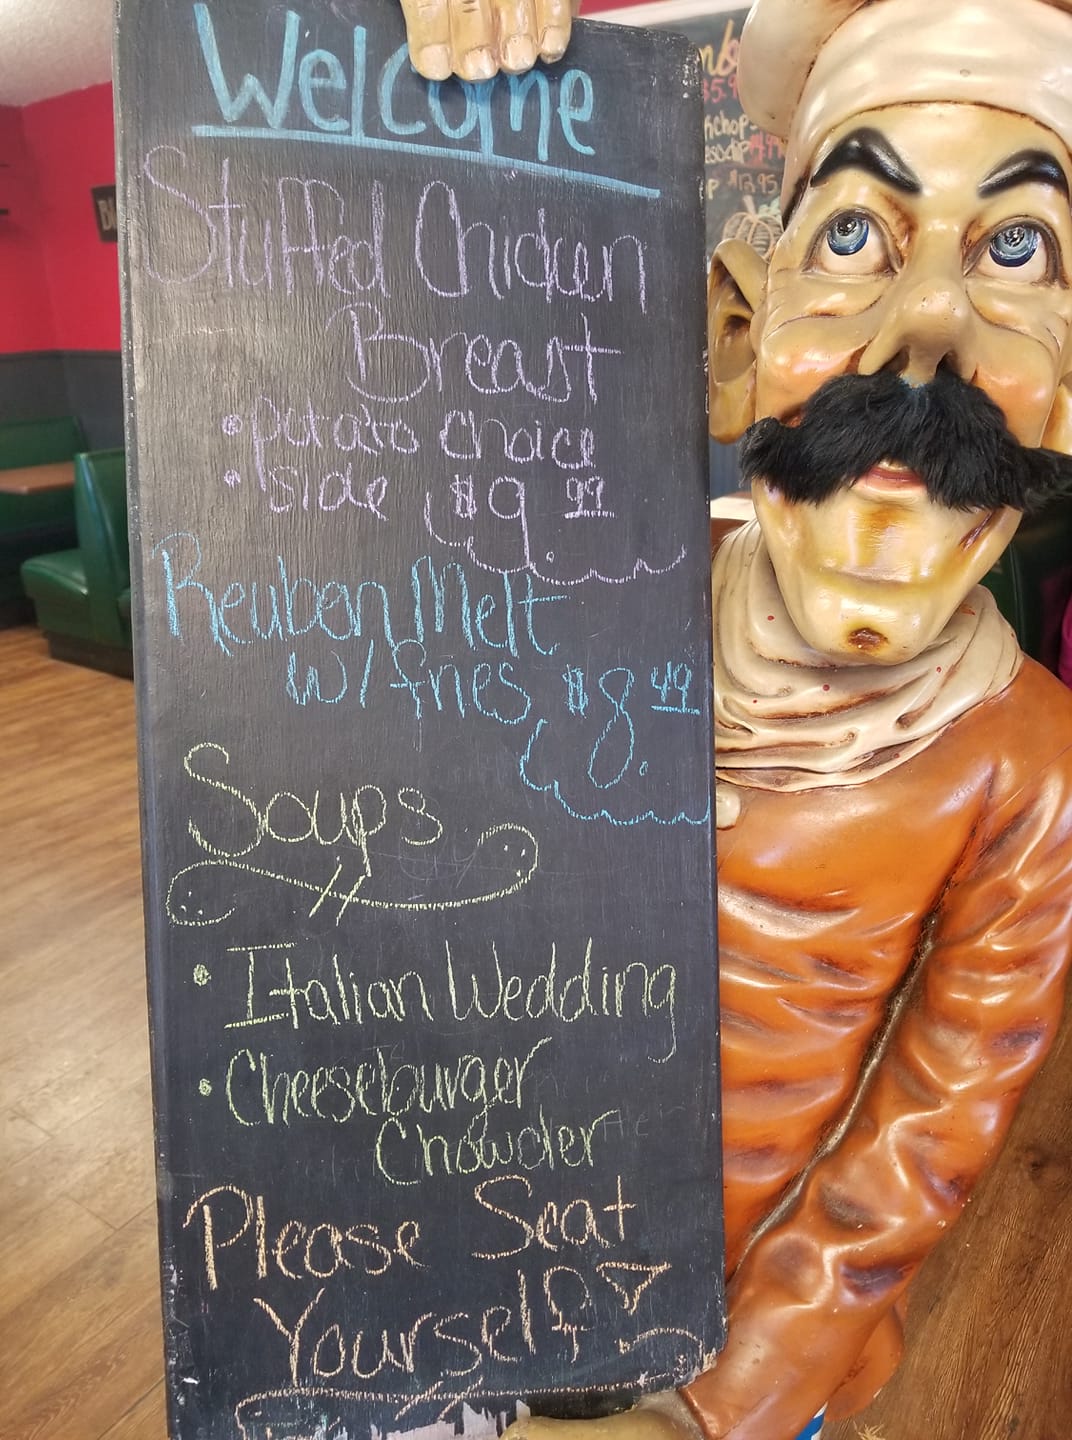 Welcome
Stuffed Chicken
Breast
• potato choice
• side $9.99
Reuben Melt
w/ fries $8.49
Soups
• Italian Wedding
• Cheeseburger
Chowder
Please Seat
Yourself
$13.95